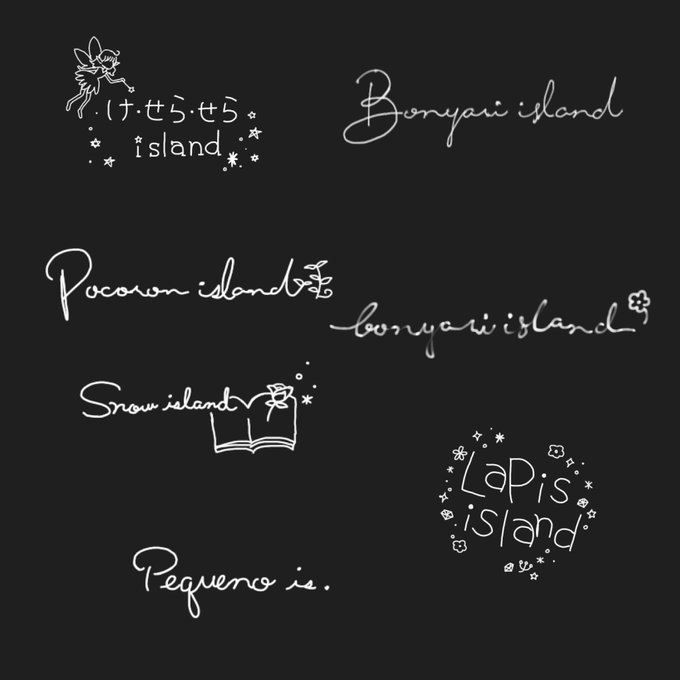 け・せら・せら
island
Bonyari island
Pocoron island
bonyari island
Snow island
LaPis
island
Pequeno is.